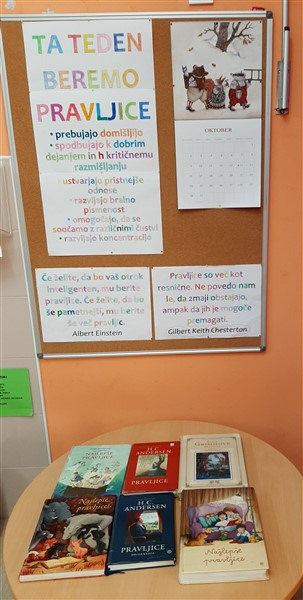 TA TEDEN
BEREMO
PRAVLJICE
• prebujajo domišljijo
• spodbujajo k dobrim
dejanjem in h kritičnemu
razmišljanju
• ustvarjajo pristnejše
odnose
• razvijajo bralno
pismenost
• omogočajo, da se
soočamo z različnimi čustvi
• razvijajo koncentracijo
OKTOBER
Če želite, da bo vaš otrok
inteligenten, mu berite
pravljice. Če želite, da bo
še pametnejši, mu berite
še več pravljic.
Albert Einstein
Pravljice so več kot
resnične. Ne povedo nam
le, da zmaji obstajajo,
ampak da jih je mogoče
premagati.
Gilbert Keith Chesterton
NAJLEPŠE
PRAVLJICE
H. C.
ANDERSEN
PRAVLJICE
Najlepše
pravljice
H. C.
ANDERSEN
PRAVLJICE
Najlepše
pravljice